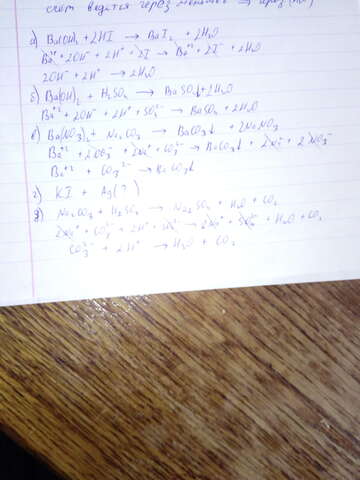 счёт ведется через
а) Ba(OH)₂ + 2HI → BaI₂ + 2H₂O
Ba⁺² + 2OH⁻ + 2H⁺ + 2I⁻ → Ba⁺² + 2I⁻ + 2H₂O
2OH⁻ + 2H⁺ → 2H₂O
б) Ba(OH)₂ + H₂SO₄ → BaSO₄↓ + 2H₂O
Ba⁺² + 2OH⁻ + 2H⁺ + SO₄²⁻ → BaSO₄ + 2H₂O
в) Ba(NO₃)₂ + Na₂CO₃ → BaCO₃↓ + 2NaNO₃
Ba⁺² + 2NO₃⁻ + 2Na⁺ + CO₃²⁻ → BaCO₃↓ + 2Na⁺ + 2NO₃⁻
Ba⁺² + CO₃²⁻ → BaCO₃↓
г) KI + Ag(?)
д) Na₂CO₃ + H₂SO₄ → Na₂SO₄ + H₂O + CO₂
2Na⁺ + CO₃²⁻ + 2H⁺ + SO₄²⁻ → 2Na⁺ + SO₄²⁻ + H₂O + CO₂
CO₃²⁻ + 2H⁺ → H₂O + CO₂